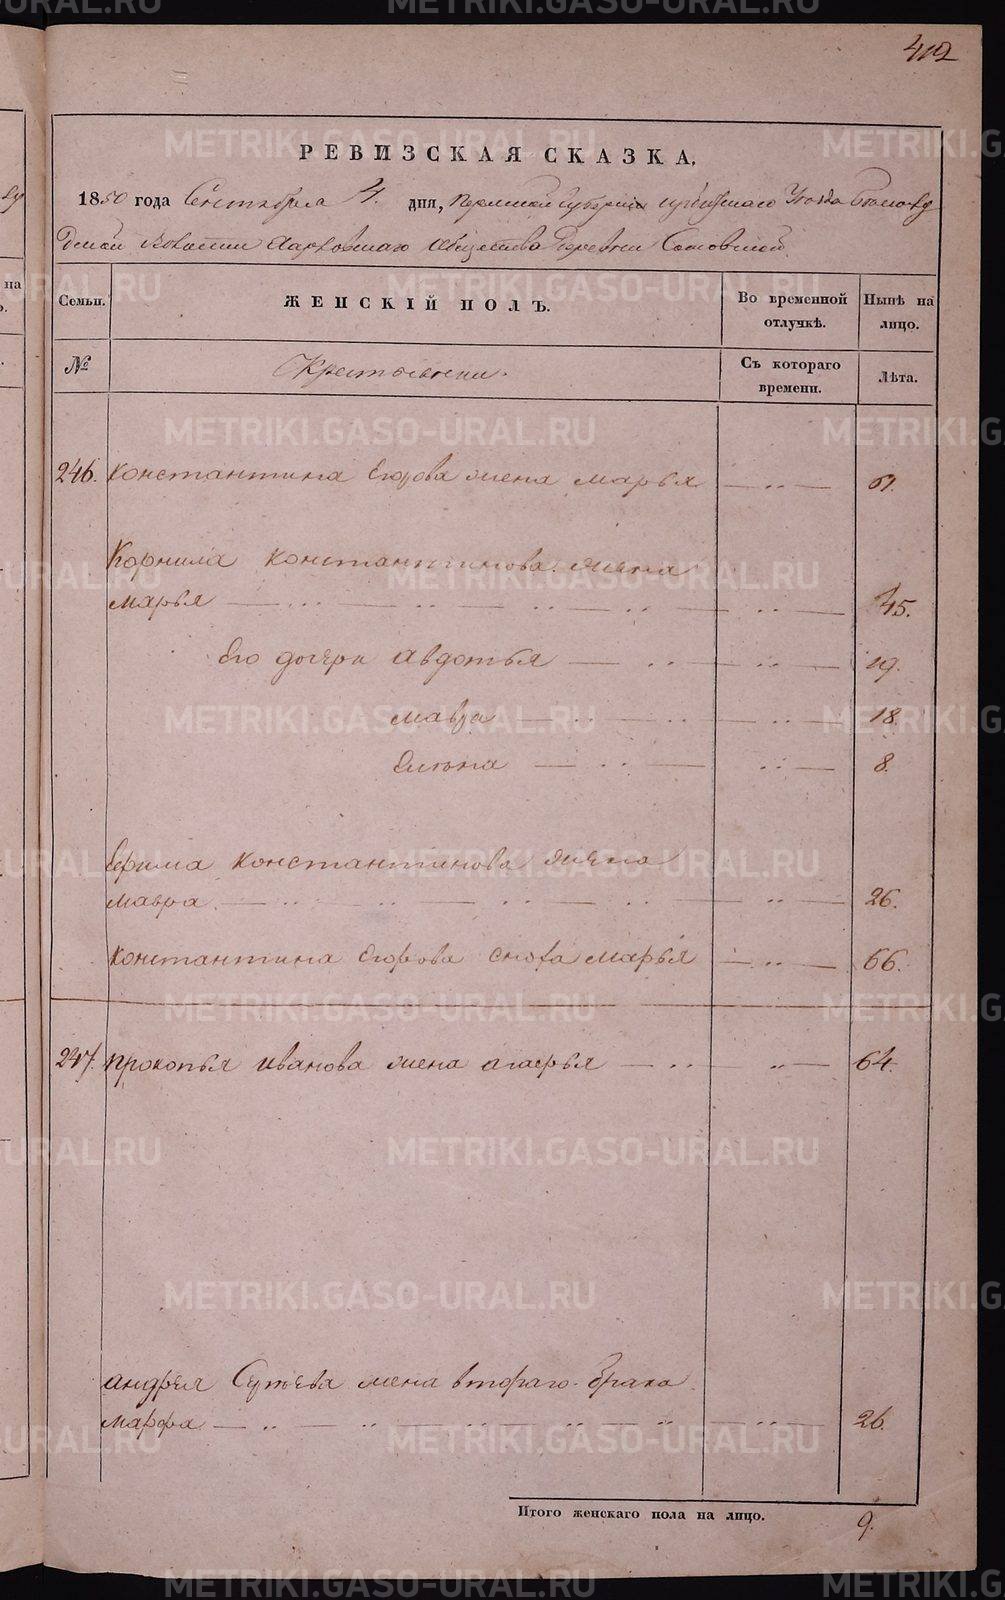 412
РЕВИЗСКАЯ СКАЗКА.
1850 года Сентября 4. дня, Пермской Губернии Ирбитскаго Уезда
Волости Харловскаго Общества Деревни
Семьи. ЖЕНСКІЙ ПОЛЪ. Во временной отлучкѣ. Нынѣ на лицо.
№ Крестьянки. Съ котораго времени. Лѣта.
246. Константина Егорова жена Марья — .. — 61.
Корнила Константинова жена
Марья — .. — .. — .. — .. — .. — 45.
Его дочери Авдотья — .. — .. — 19.
Мавра — .. — .. — .. — 18.
Елена — .. — .. — 8.
Ефима Константинова жена
Мавра — .. — .. — .. — .. — .. — 26.
Константина Егорова сноха Марья — .. — 66.
247. Прокопья Иванова жена Агафья — .. — .. — 64.
Андрея Сергѣева жена втораго брака
Марфа — .. — .. — .. — .. — .. — .. — 26.
Итого женскаго пола на лицо. 9.
METRIKI.GASO-URAL.RU